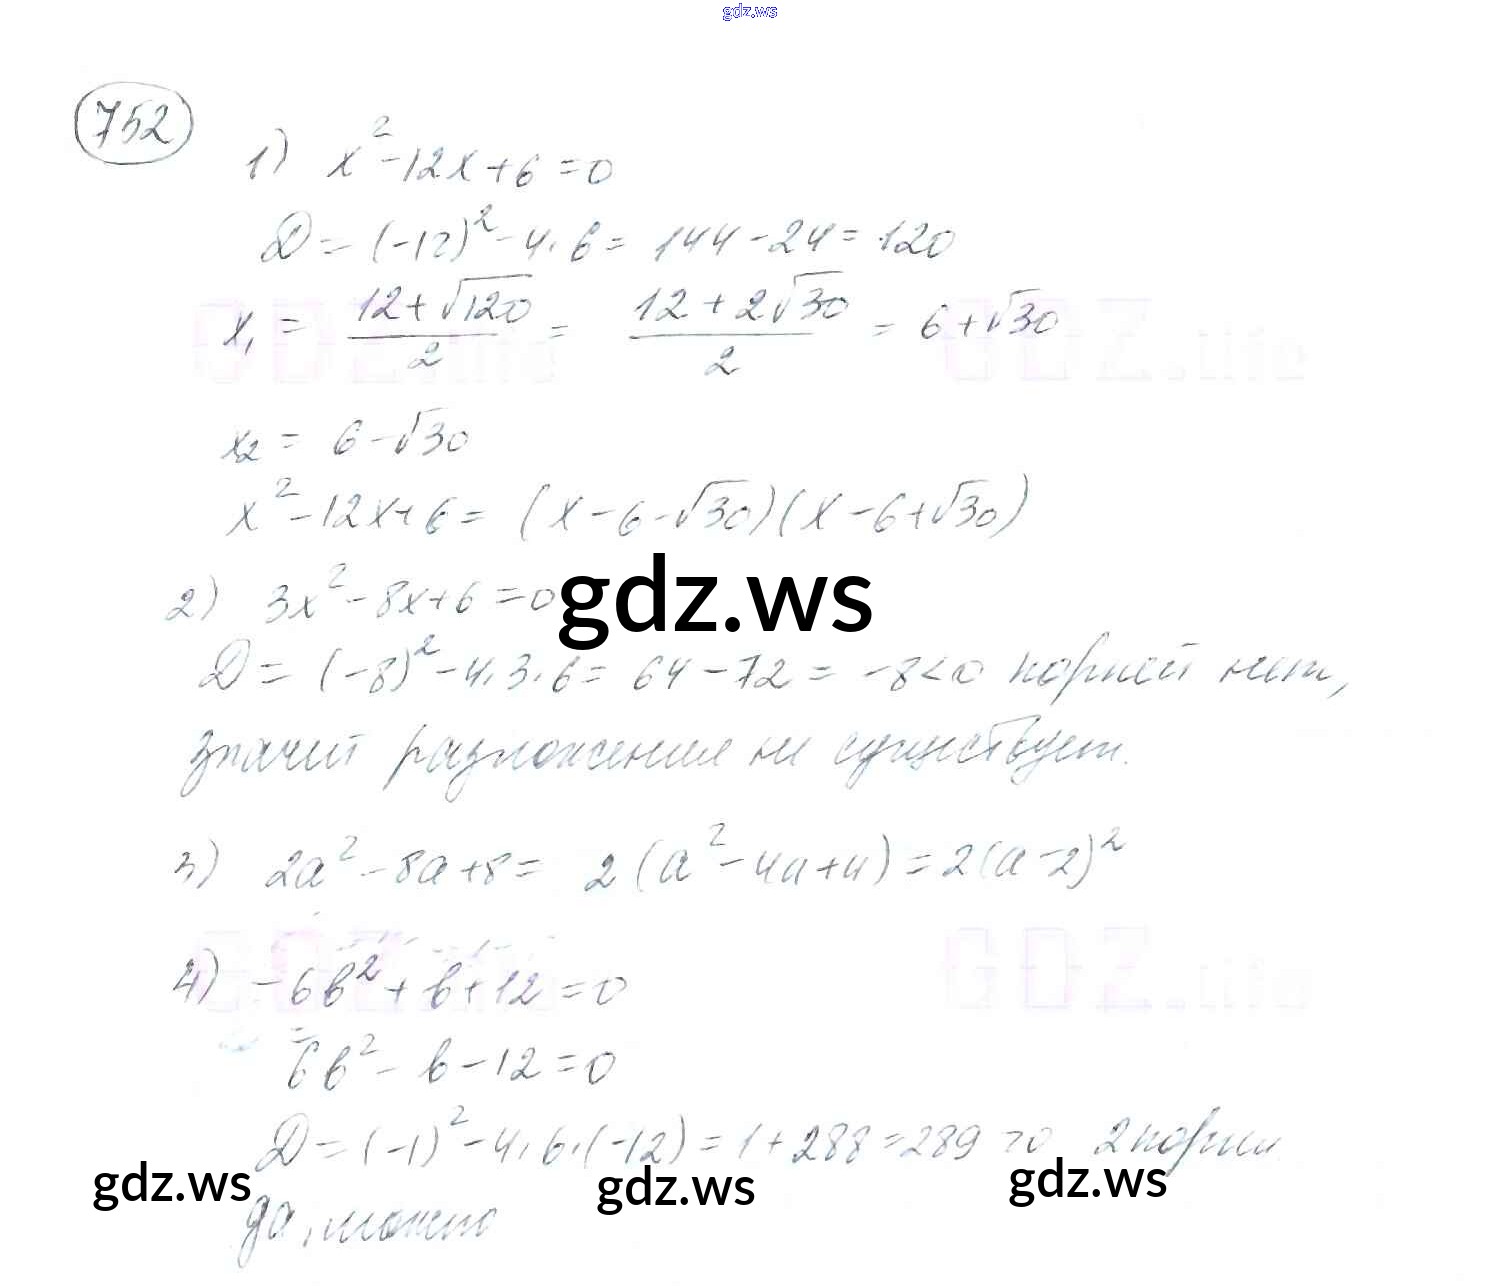 gdz.ws
752
1) x² - 12x + 6 = 0
D = (-12)² - 4·6 = 144 - 24 = 120
x₁ = (12 + √120)/2 = (12 + 2√30)/2 = 6 + √30
x₂ = 6 - √30
x² - 12x + 6 = (x - 6 - √30)(x - 6 + √30)
2) 3x² - 8x + 6 = 0
gdz.ws
D = (-8)² - 4·3·6 = 64 - 72 = -8 < 0 корней нет,
значит разложения не существует.
3) 2a² - 8a + 8 = 2(a² - 4a + 4) = 2(a - 2)²
4) -6b² + b + 12 = 0
6b² - b - 12 = 0
D = (-1)² - 4·6·(-12) = 1 + 288 = 289 > 0 2 корня
gdz.ws gdz.ws gdz.ws
да, можно
GDZ.life GDZ.life
GDZ.life GDZ.life